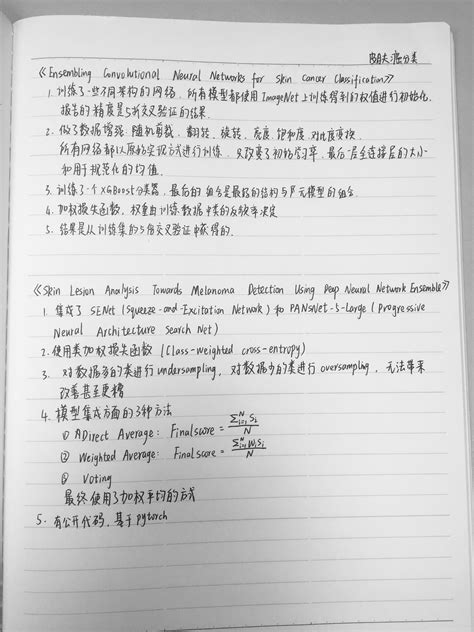 皮肤癌分类
《Ensembling Convolutional Neural Networks for Skin Cancer Classification》
1. 训练了一些不同架构的网络，所有模型都使用ImageNet上训练得到的权值进行初始化，
报告的精度是5折交叉验证的结果.
2. 做了数据增强 随机剪裁、翻转、旋转、亮度、饱和度、对比度变换.
所有网络都以原始实现方式进行训练，只改变了初始学习率，最后一层全连接层的大小
和用于规范化的均值.
3. 训练了一个XGBoost分类器，最后的组合是最好的结构与单元模型的组合.
4. 加权损失函数，权重由训练数据中类的反频率决定
5. 结果是从训练集的5倍交叉验证中获得的.
《Skin Lesion Analysis Towards Melanoma Detection Using Deep Neural Network Ensemble》
1. 集成了 SENet (Squeeze-and-Excitation Network) 和 PANsNet-5-Large (Progressive
Neural Architecture Search Net)
2. 使用类加权损失函数 (Class-weighted cross-entropy)
3. 对数据多的类进行undersampling，对数据少的类进行oversampling，无法带来
改善甚至更糟
4. 模型集成方面的3种方法
① ADirect Average: Finalscore = $\frac{\sum_{i=1}^{N} S_i}{N}$
② Weighted Average: Finalscore = $\frac{\sum_{i=1}^{N} W_i S_i}{N}$
③ Voting
最终使用了加权平均的方式
5. 有公开代码，基于pytorch